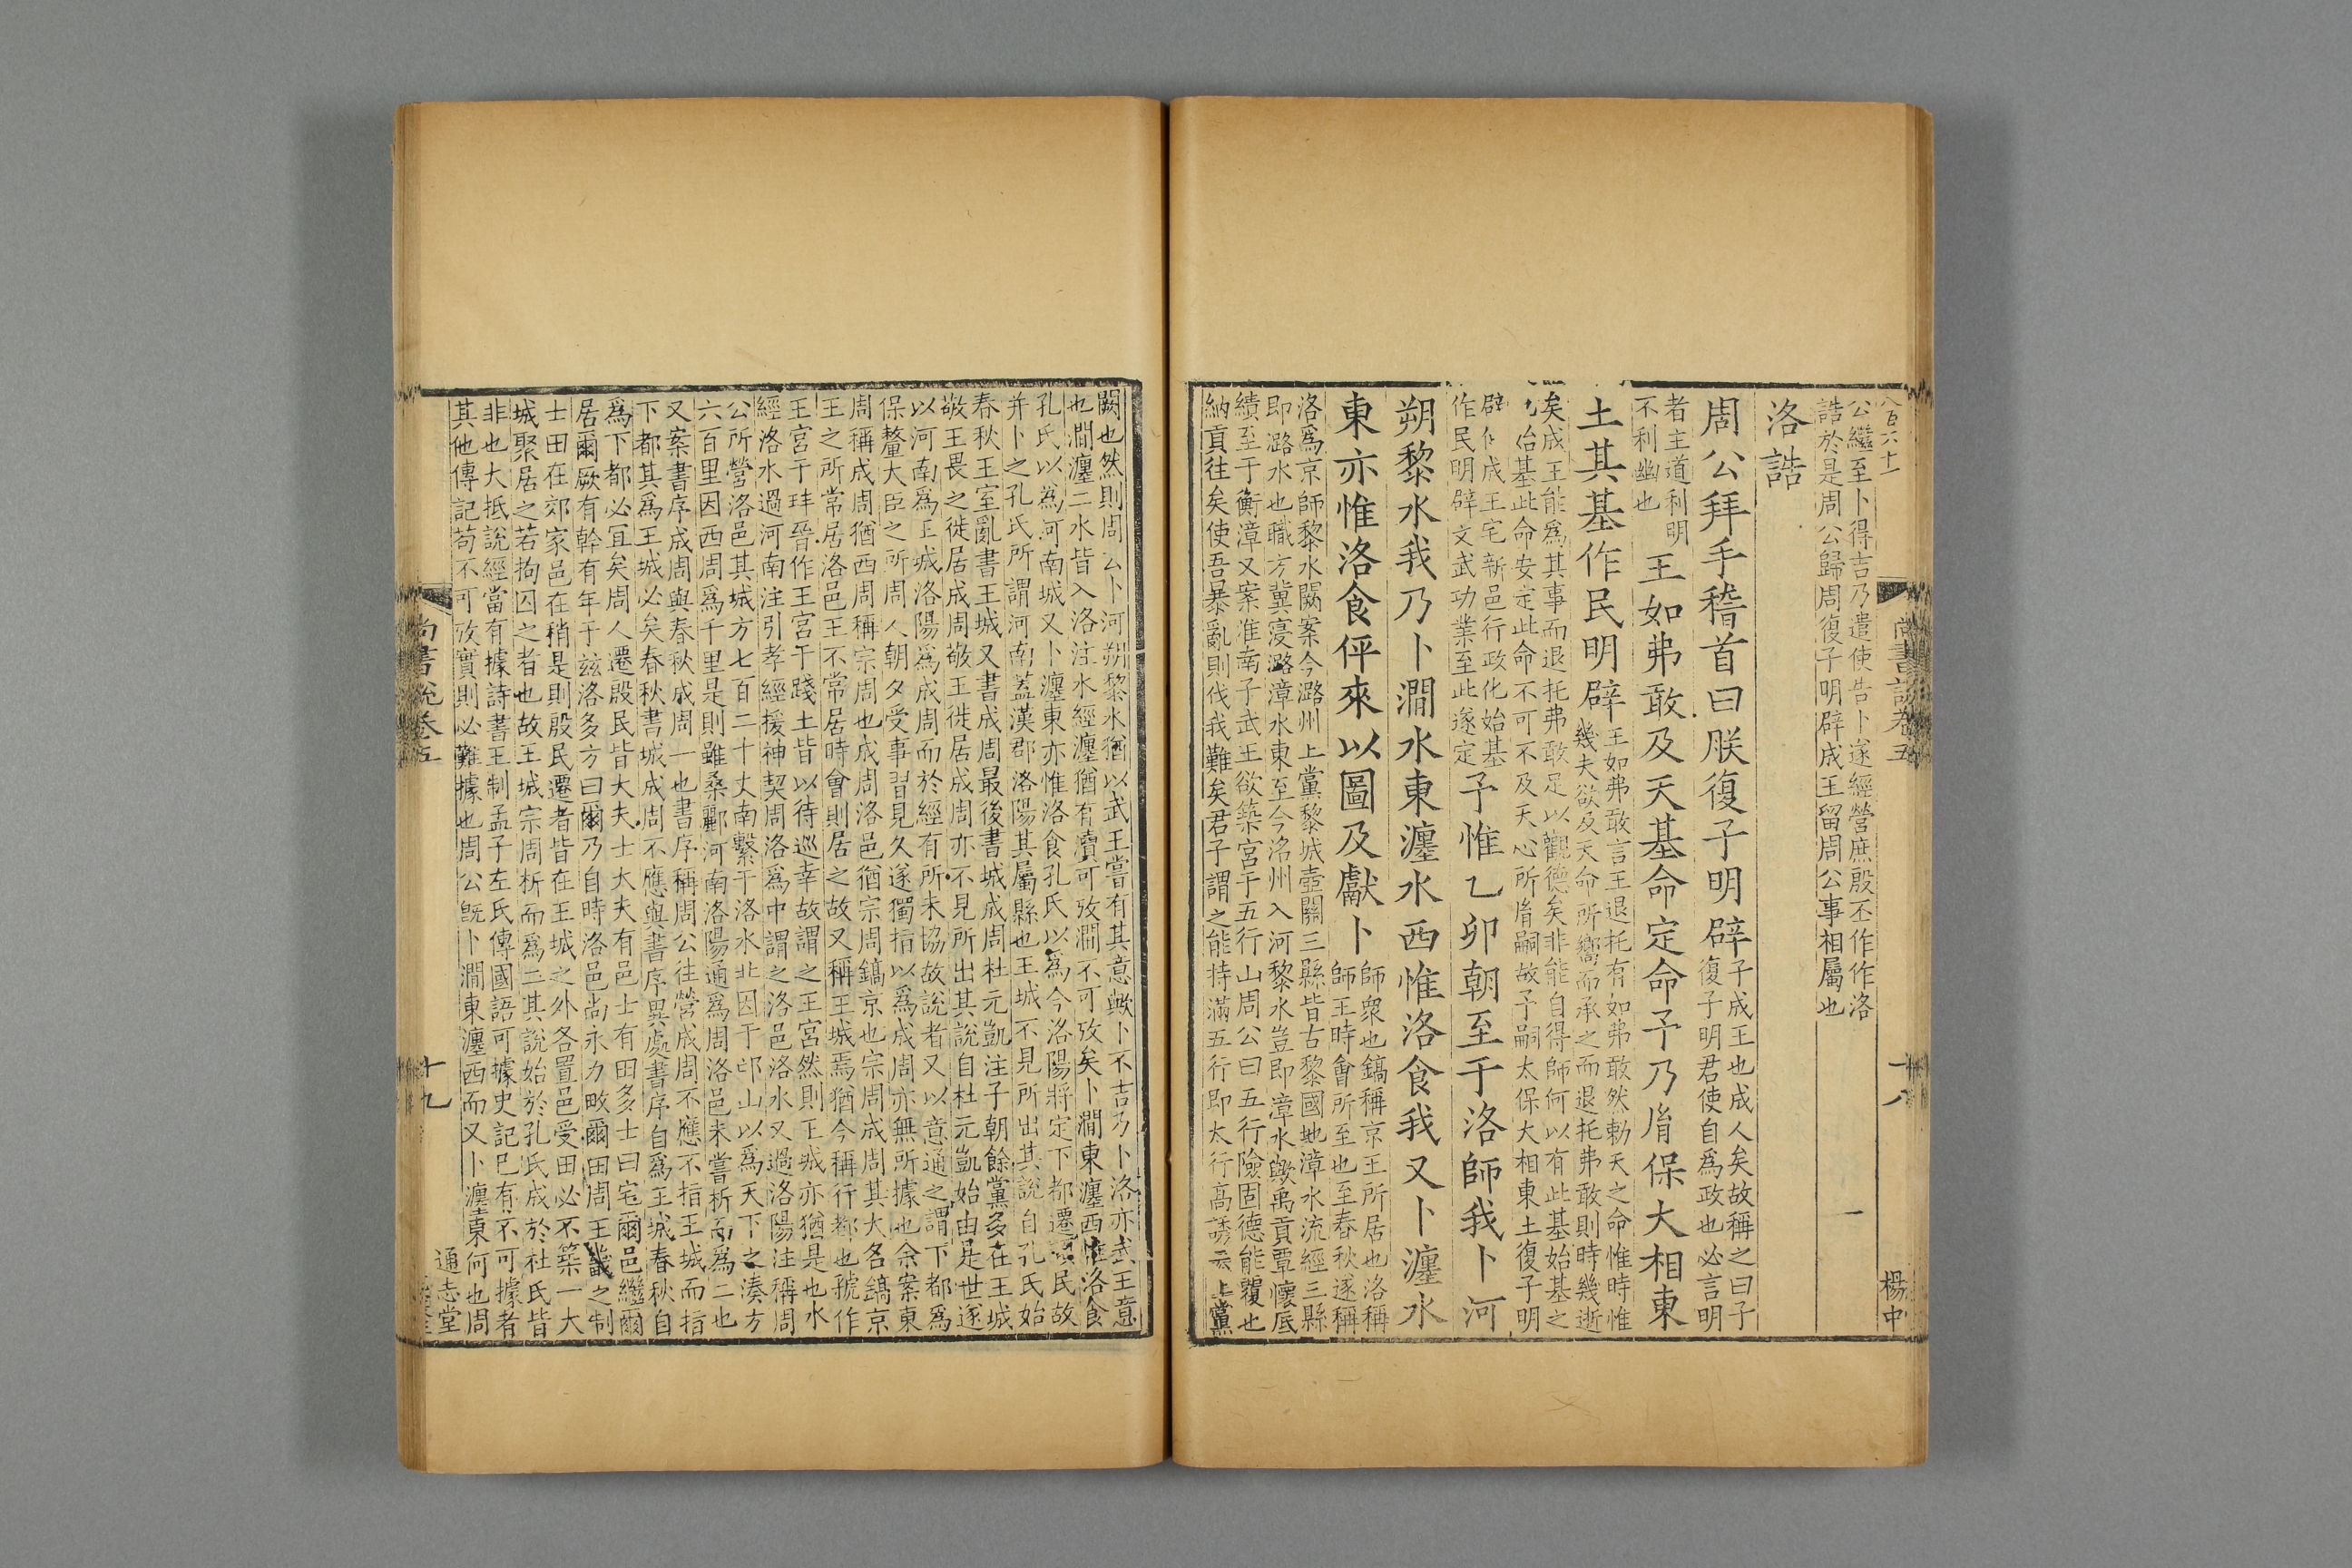 八百六十一
尚書說卷五
十八
楊中
公繼至卜得吉乃遣使告卜遂經營庶殷丕作作洛
誥於是周公歸周復子明辟成王留周公事相屬也
洛誥
周公拜手稽首曰朕復子明辟
子成王也成人矣故稱之曰子
復子明君使自為政也必言明
者主道利明
不利幽也
王如弗敢及天基命定命予乃胤保大相東
土其基作民明辟
王如弗敢言王退托有如弗敢然勅天之命惟時惟
幾夫欲及天命所嚮而承之而退托弗敢則時幾逝
矣成王能為其事而退托弗敢足以觀德矣非能自得師何以有此基始基之
也始基此命安定此命不可不及天心所胤嗣故予嗣太保大相東土復子明
辟作成王宅新邑行政化始基
作民明辟文武功業至此遂定
予惟乙卯朝至于洛師我卜河
朔黎水我乃卜澗水東瀍水西惟洛食我又卜瀍水
東亦惟洛食伻來以圖及獻卜
師衆也鎬稱京王所居也洛稱
師王時會所至也至春秋遂稱
洛為京師黎水闕案今潞州上黨黎城壺關三縣皆古黎國地漳水流經三縣
即潞水也職方冀寖潞漳水東至今洺州入河黎水豈即漳水歟禹貢覃懷厎
績至于衡漳又案淮南子武王欲築宮于五行山周公曰五行險固德能覆也
納貢往矣使吾暴亂則伐我難矣君子謂之能持滿五行即太行高誘云上黨
闕也然則周公卜河朔黎水猶以武王嘗有其意歟卜不吉乃卜洛亦武王意
也澗瀍二水皆入洛注水經瀍猶有瀆可攷澗不可攷矣卜澗東瀍西惟洛食
孔氏以為河南城又卜瀍東亦惟洛食孔氏以為今洛陽將定下都遷民故
并卜之孔氏所謂河南蓋漢郡洛陽其屬縣也王城不見所出其說自孔氏始
春秋王室亂書王城又書成周最後書城成周杜元凱注子朝餘黨多在王城
敬王畏之徙居成周敬王徙居成周亦不見所出其說自杜元凱始由是世遂
以河南為王城洛陽為成周而於經有所未協故說者又以意通之謂下都為
保釐大臣之所周人朝夕受事習見久遂獨指以為成周亦無所據也余案東
周稱成周猶西周稱宗周也成周洛邑猶宗周鎬京也宗周成周其大名鎬京
王之所常居洛邑王不常居時會則居之故又稱王城焉猶今稱行都也虢作
王宮于玤晉作王宮于踐土皆以待巡幸故謂之王宮然則王城亦猶是也水
經洛水過河南注引孝經援神契周洛為中謂之洛邑洛水又過洛陽注稱周
公所營洛邑其城方七百二十丈南繫于洛水北因于邙山以為天下之湊方
六百里因西周為千里是則雖桑酈河南洛陽通為周洛邑未嘗析而為二也
又案書序成周與春秋成周一也書序稱周公往營成周不應不指王城而指
下都其為王城必矣春秋書城成周不應與書序異處書序自為王城春秋自
為下都必宜矣周人遷殷民皆大夫士大夫有邑士有田多士曰宅爾邑繼爾
居爾厥有幹有年于兹洛多方曰爾乃自時洛邑尚永力畋爾田周王畿之制
士田在郊家邑在稍是則殷民遷者皆在王城之外各置邑受田必不築一大
城聚居之若拘囚之者也故王城宗周析而為二其說始於孔氏成於杜氏皆
非也大抵說經當有據詩書王制孟子左氏傳國語可據史記已有不可據者
其他傳記苟不可攷實則必難據也周公既卜澗東瀍西而又卜瀍東何也周
尚書說卷五
十九
通志堂